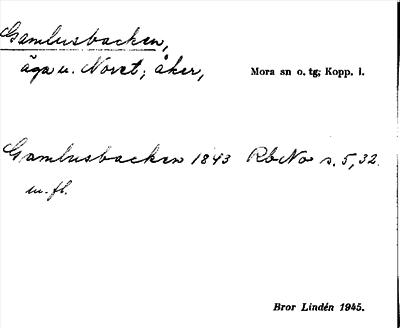 Gamlusbacken,
äga u. Noret; åker,
Mora sn o. tg; Kopp. l.
Gamlusbacken 1843 RbNo s. 5, 32
m. fl.
Bror Lindén 1945.